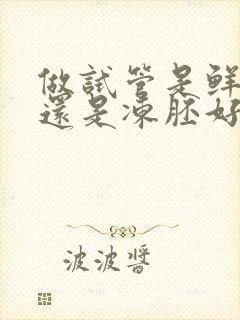 做試管是鮮
還是凍胚好
波波醬